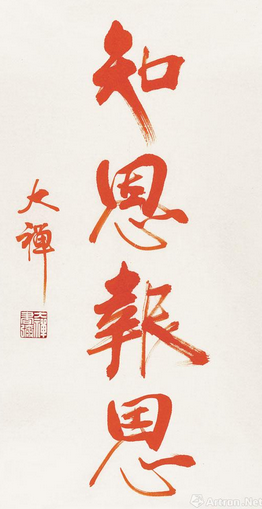 知恩報恩
大禅
Artron.Net